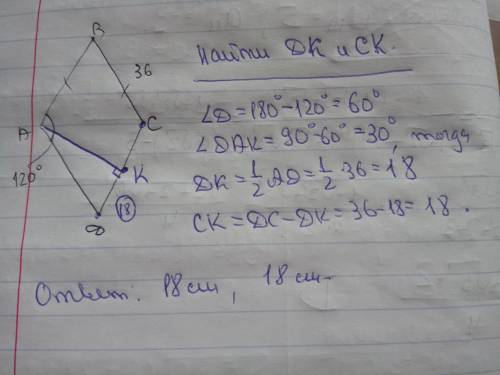 B
36
A
C
K
120°
18
D
Найти DK и CK.
∠D=180°-120°=60°
∠DAK=90°-60°=30°, тогда
DK=1/2 AD=1/2·36=18
CK=DC-DK=36-18=18.
Ответ: 18см, 18см.